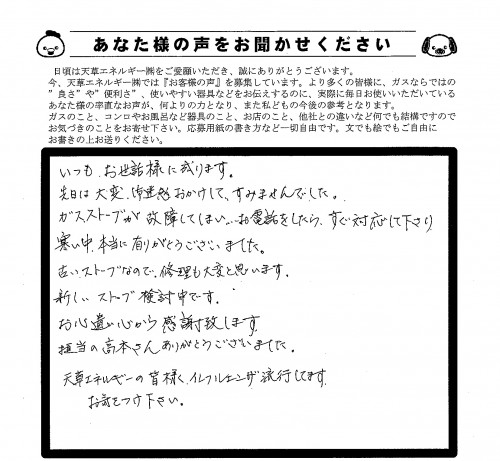 あなた様の声をお聞かせください
日頃は天草エネルギー㈱をご愛顧いただき、誠にありがとうございます。
今、天草エネルギー㈱では『お客様の声』を募集しています。より多くの皆様に、ガスならではの
”良さ”や”便利さ”、使いやすい器具などをお伝えするのに、実際に毎日お使いいただいている
あなた様の率直なお声が、何よりの力となり、また私どもの今後の参考となります。
ガスのこと、コンロやお風呂など器具のこと、お店のこと、他社との違いなど何でも結構ですので
お気づきのことをお寄せ下さい。応募用紙の書き方など一切自由です。文でも絵でもご自由に
お書きの上お送りください。
いつも、お世話様に成ります。
先日は大変、御迷惑おかけして、すみませんでした。
ガスストーブが故障してしまい、お電話をしたら、すぐ対応して下さり
寒い中、本当に有りがとうございました。
古いストーブなので、修理も大変と思います。
新しいストーブ検討中です。
お心遣い心から感謝致します
担当の高本さんありがとうございました。
天草エネルギーの皆様、インフルエンザ流行してます
お気をつけ下さい。